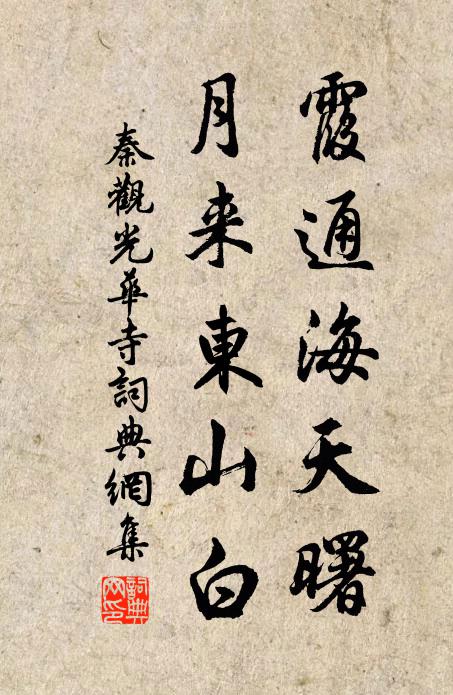 霞通海天曙
月来東山白
秦觀光華寺詞典網集
詞典網印